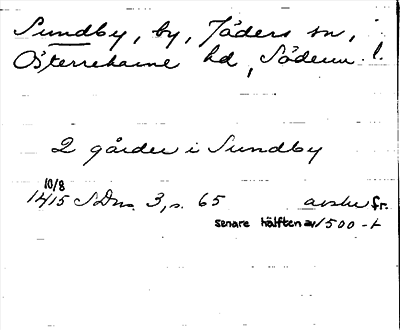 Sundby, by, Jäders sn,
Österrekarne hd, Söderm. l.
2 gårder i Sundby
10/8
1415 SDns. 3, s. 65 avskr fr.
senare hälften av 1500-t